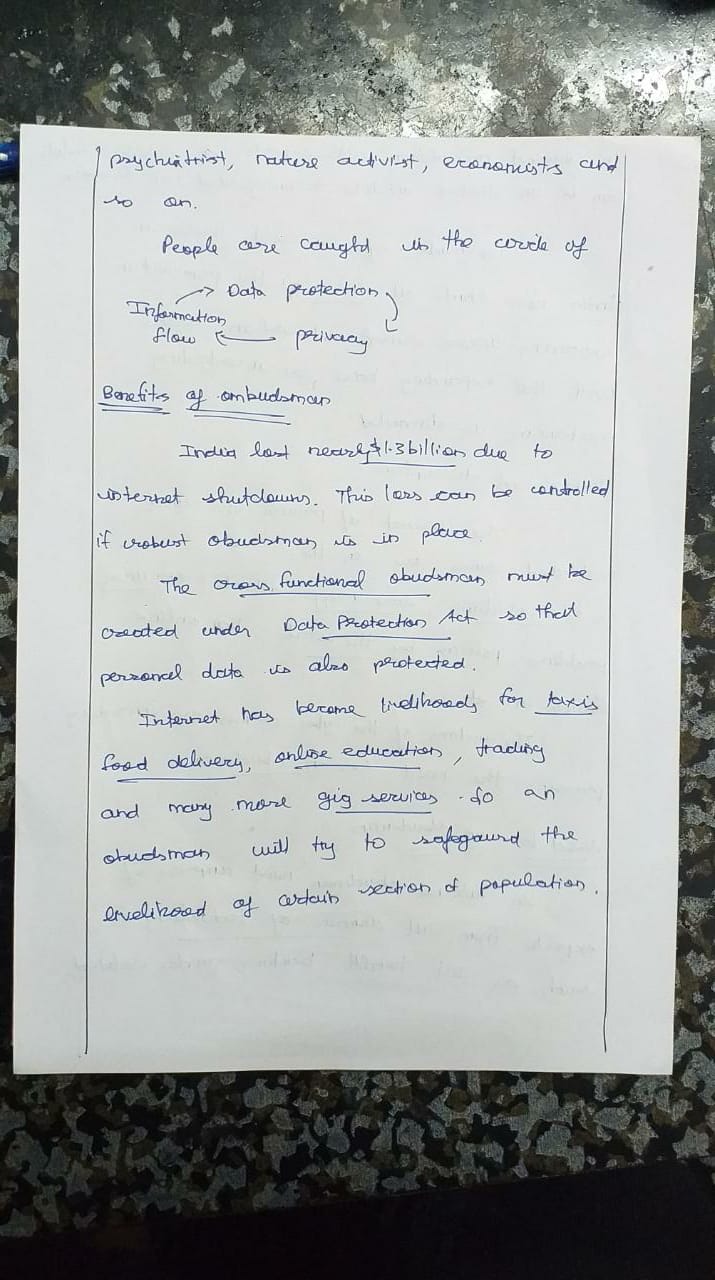 psychiatrist, nature activist, economists and
so on.
People are caught in the circle of
Data protection
Information
flow
privacy
Benefits of ombudsman
India lost nearly $1.3 billion due to
internet shutdowns. This loss can be controlled
if robust obudsman is in place.
The cross functional obudsman must be
created under Data Protection Act so that
personal data is also protected.
Internet has become livelihoods for taxis
food delivery, online education, trading
and many more gig services. So an
obudsman will try to safegaurd the
livelihood of certain section of population.